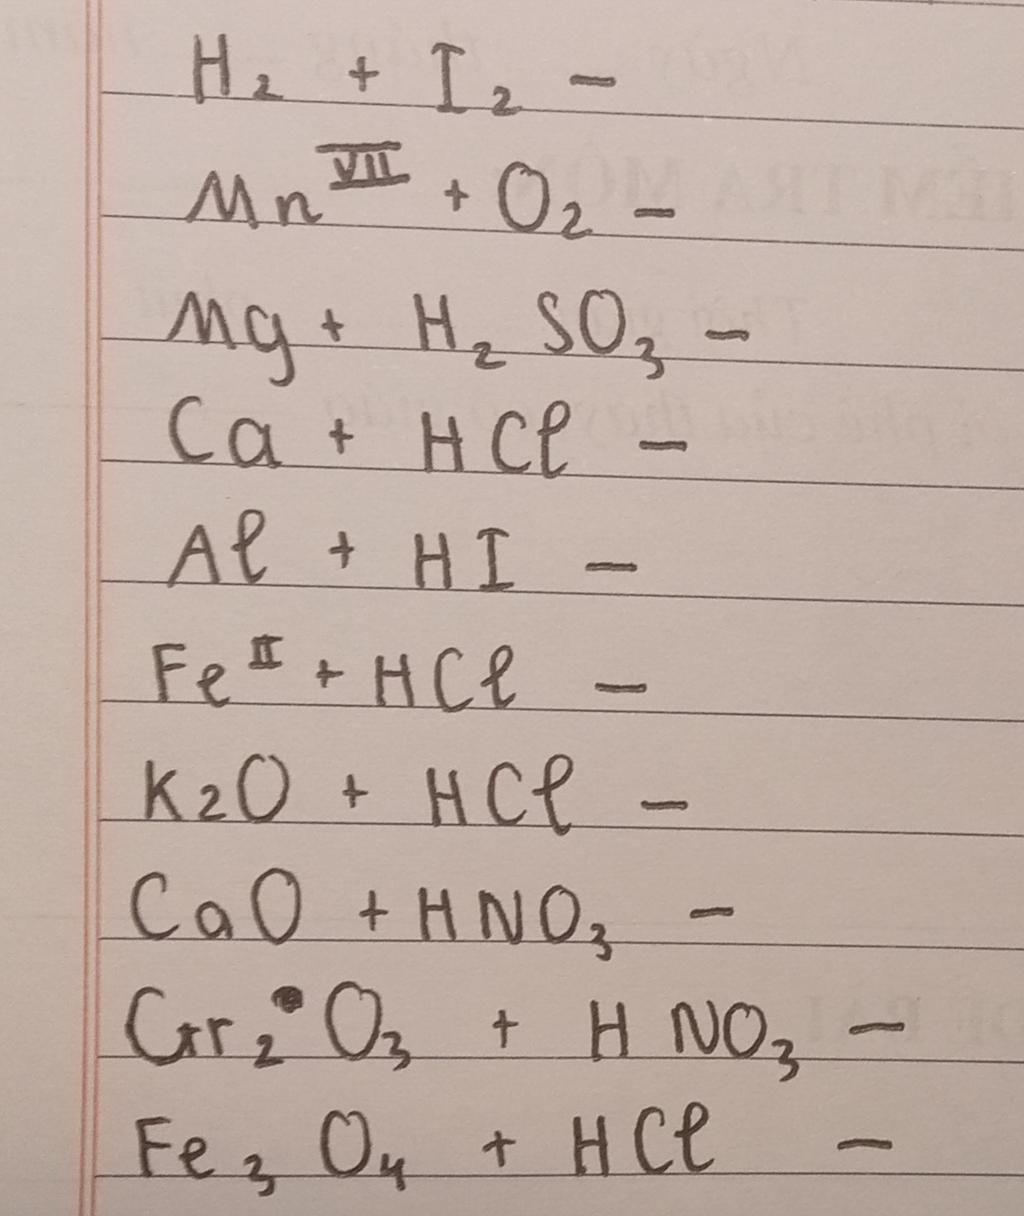 H₂ + I₂ –
Mn^VII + O₂ –
Mg + H₂SO₃ –
Ca + HCl –
Al + HI –
Fe^II + HCl –
K2O + HCl –
CaO + HNO₃ –
Cr₂O₃ + HNO₃ –
Fe₃O₄ + HCl –